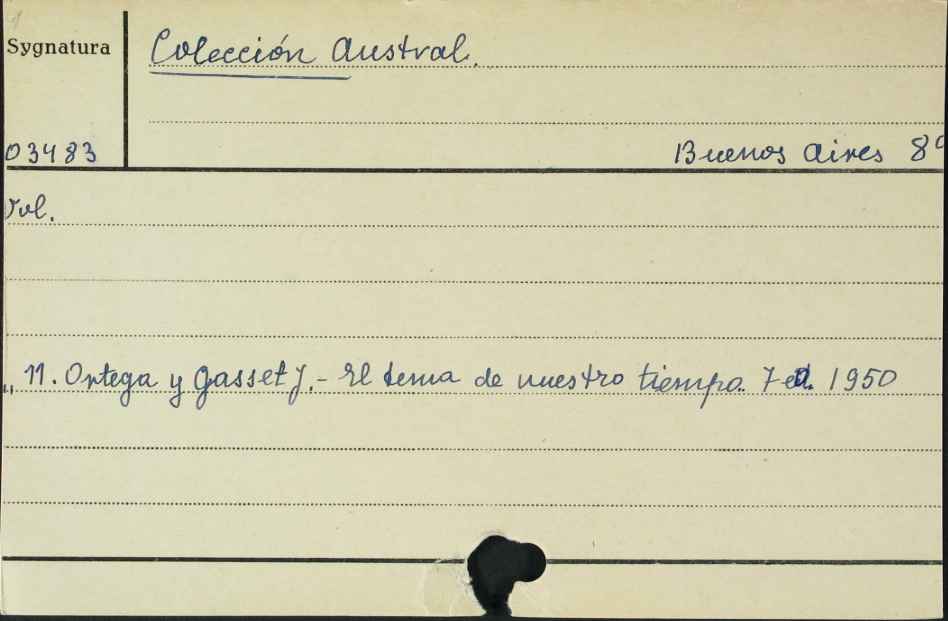 Sygnatura
Colección Austral.
03483
Buenos Aires 8º
Vol.
„ 11. Ortega y Gasset J. - El tema de nuestro tiempo. 7 ed. 1950